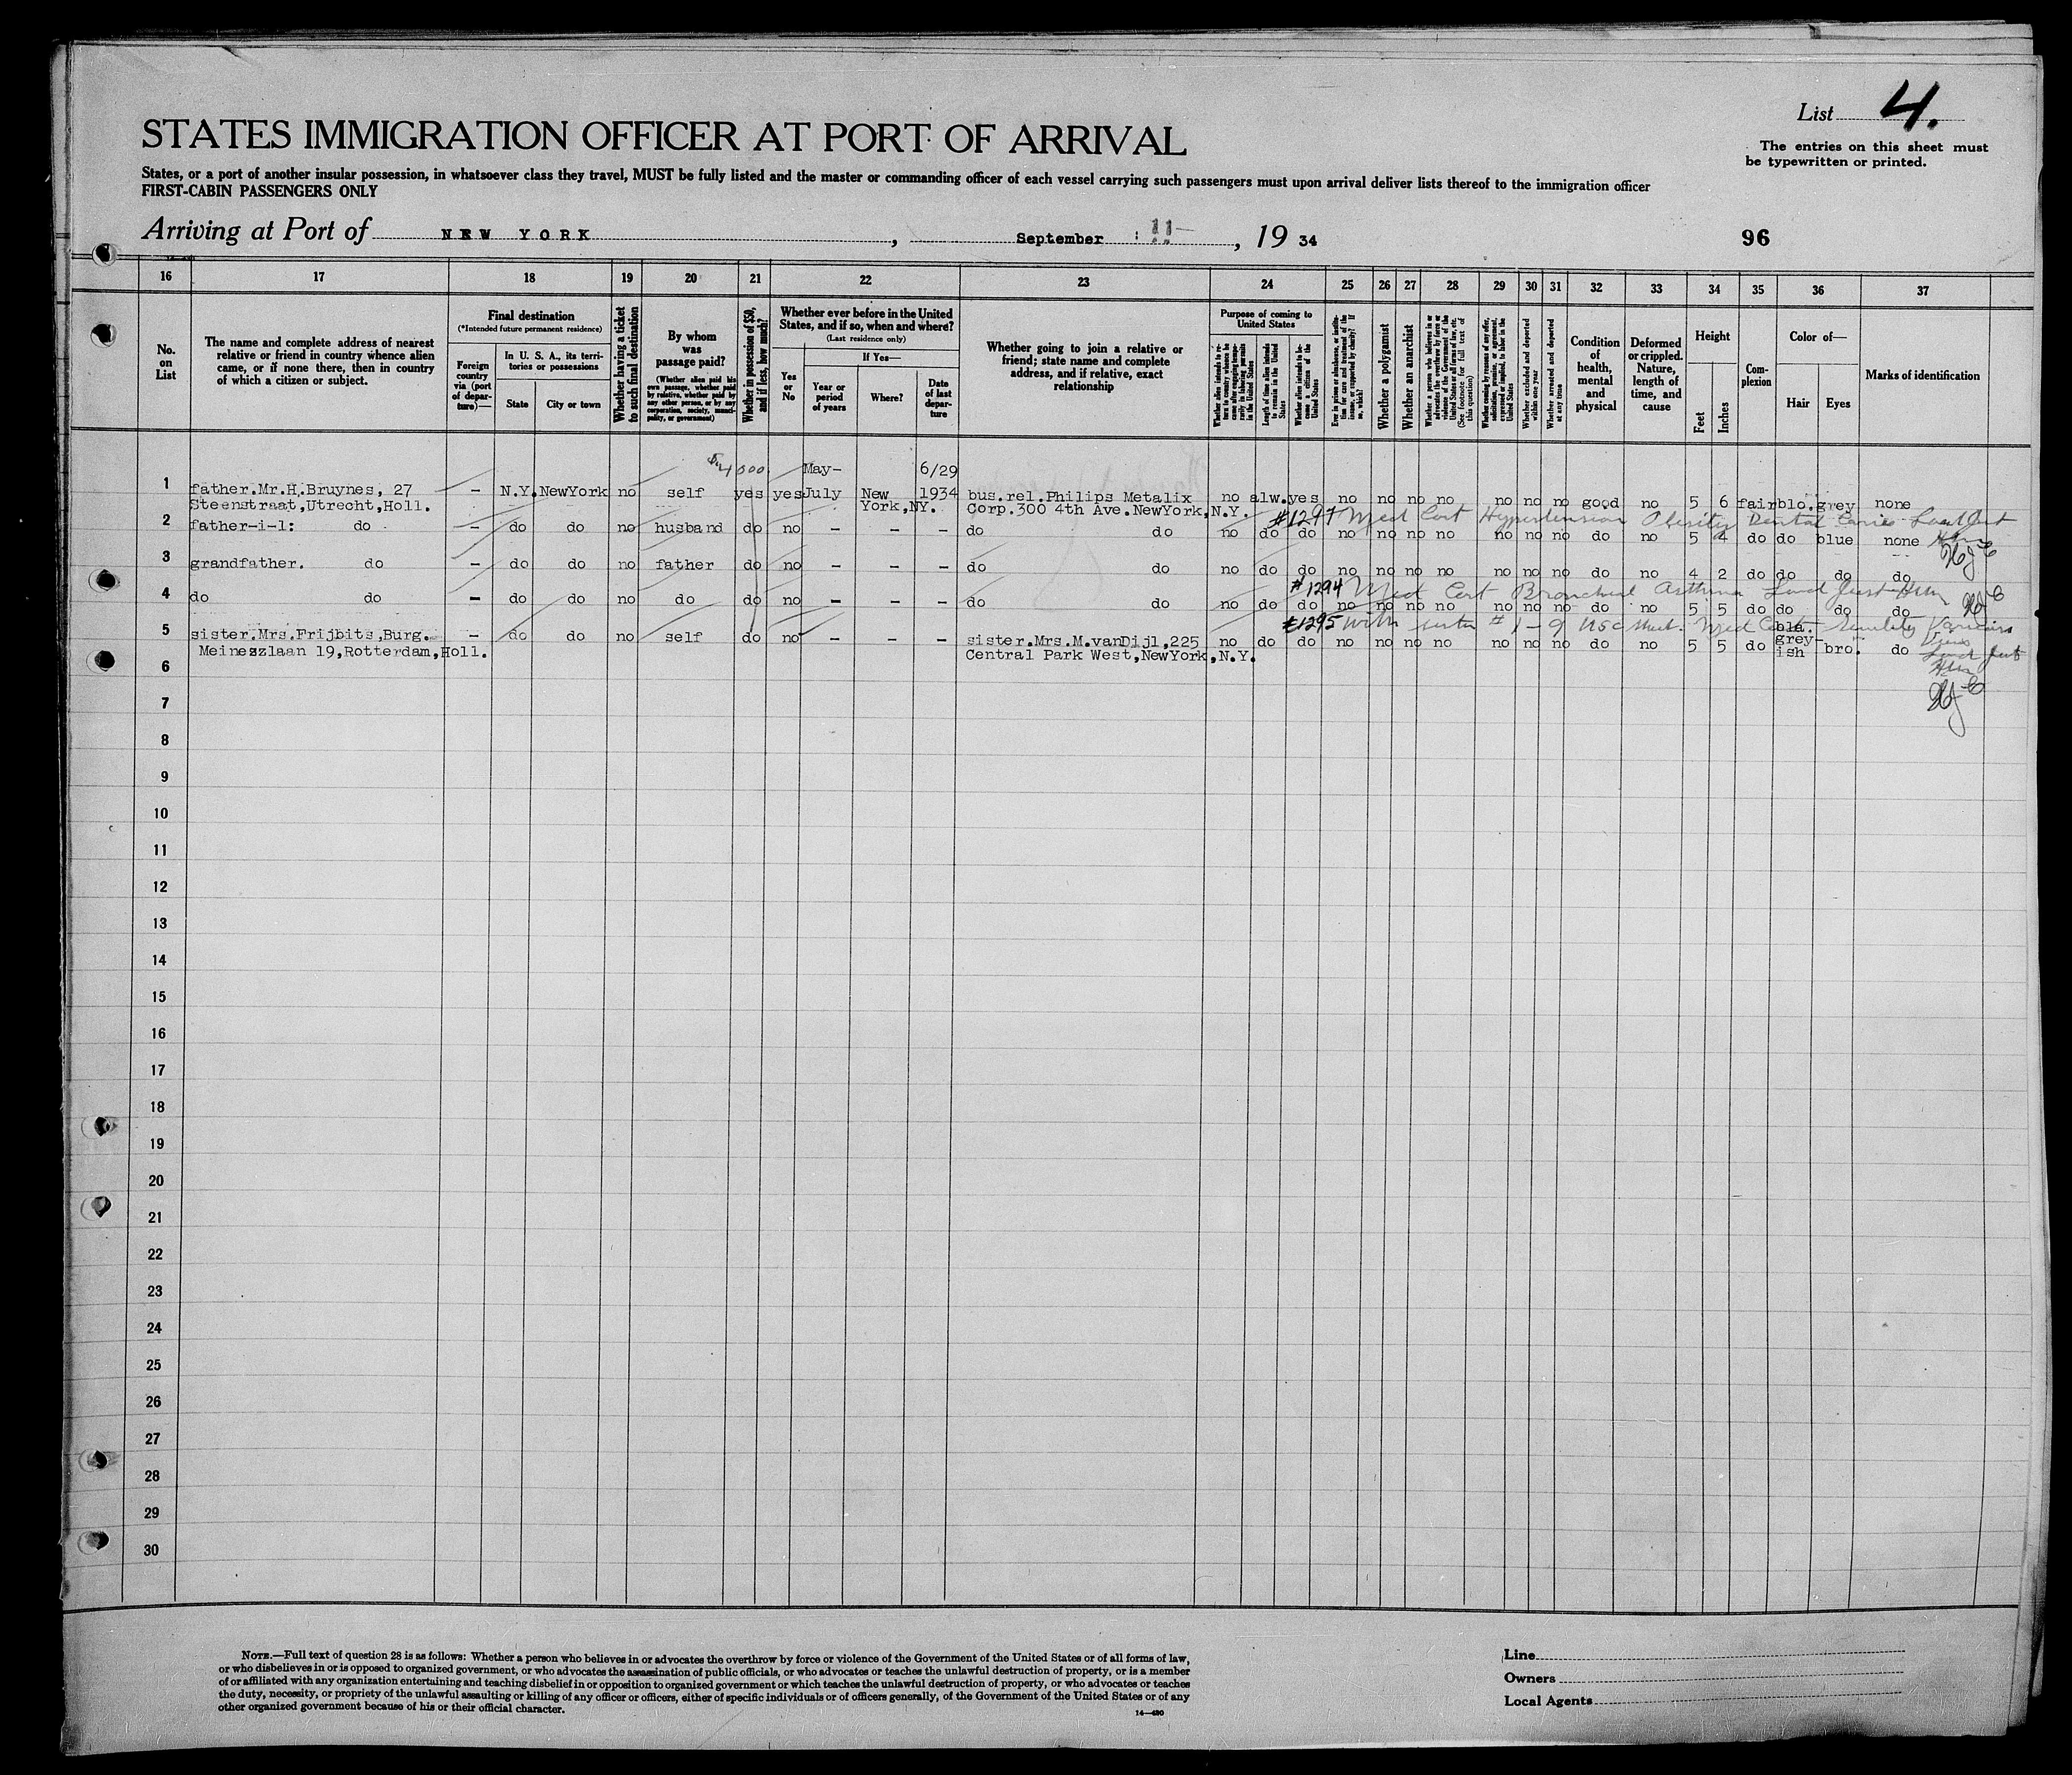 List 4.
STATES IMMIGRATION OFFICER AT PORT OF ARRIVAL
The entries on this sheet must
be typewritten or printed.
States, or a port of another insular possession, in whatsoever class they travel, MUST be fully listed and the master or commanding officer of each vessel carrying such passengers must upon arrival deliver lists thereof to the immigration officer
FIRST-CABIN PASSENGERS ONLY
Arriving at Port of NEW YORK , September 11 , 19 34 96
16 17 18 19 20 21 22 23 24 25 26 27 28 29 30 31 32 33 34 35 36 37
No. on List
The name and complete address of nearest relative or friend in country whence alien came, or if none there, then in country of which a citizen or subject.
Final destination
(*Intended future permanent residence)
Foreign country via (port of departure)—
In U. S. A., its territories or possessions
State
City or town
Whether having a ticket to such final destination
By whom was passage paid?
(Whether alien paid his own passage, whether paid by relative, whether paid by any other person, or by any corporation, society, municipality, or government)
Whether in possession of $50, and if less, how much?
Whether ever before in the United States, and if so, when and where?
(Last residence only)
Yes or No
If Yes—
Year or period of years
Where?
Date of last departure
Whether going to join a relative or friend; state name and complete address, and if relative, exact relationship
Purpose of coming to United States
Whether alien intends to return to country whence he came after engaging temporarily in laboring pursuits in the United States
Length of time alien intends to remain in the United States
Whether alien intends to become a citizen of the United States
Ever in prison or almshouse, or institution for care and treatment of the insane, or supported by charity? If so, which?
Whether a polygamist
Whether an anarchist
Whether a person who believes in or advocates the overthrow by force or violence of the Government of the United States or all forms of law, etc. (See footnote for full text of this question)
Whether coming by reason of any offer, solicitation, promise, or agreement, expressed or implied, to labor in the United States
Whether excluded and deported within one year
Whether arrested and deported at any time
Condition of health, mental and physical
Deformed or crippled. Nature, length of time, and cause
Height
Feet
Inches
Complexion
Color of—
Hair
Eyes
Marks of identification
$4000 May- 6/29
1 father.Mr.H.Bruynes, 27 - N.Y. NewYork no self yes yes July New 1934 bus.rel.Philips Metalix no alw. yes no no no no no no no good no 5 6 fair blo. grey none
Steenstraat,Utrecht,Holl. York,NY. Corp.300 4th Ave.NewYork,N.Y.
#1297 Med Cert Hypertension Obesity Dental Caries
2 father-i-l: do - do do no husband do no - - - do do no do do no no no no no no no do no 5 4 do do blue none
3 grandfather. do - do do no father do no - - - do do no do do no no no no no no no do no 4 2 do do do do
#1294 Med Cert Bronchial Asthma
4 do do - do do no do do no - - - do do no do do no no no no no no no do no 5 5 do do do do
#1295 with sister Med Cert Senility Varicose Veins
5 sister.Mrs.Frijbits,Burg. - do do no self do no - - - sister.Mrs.M.vanDijl,225 no do do no no no no no no no do no 5 5 do bla. grey-ish bro. do
Meineszlaan 19,Rotterdam,Holl. Central Park West,NewYork,N.Y.
6
7
8
9
10
11
12
13
14
15
16
17
18
19
20
21
22
23
24
25
26
27
28
29
30
NOTE.—Full text of question 28 is as follows: Whether a person who believes in or advocates the overthrow by force or violence of the Government of the United States or of all forms of law,
or who disbelieves in or is opposed to organized government, or who advocates the assassination of public officials, or who advocates or teaches the unlawful destruction of property, or is a member
of or affiliated with any organization entertaining and teaching disbelief in or opposition to organized government or which teaches the unlawful destruction of property, or who advocates or teaches
the duty, necessity, or propriety of the unlawful assaulting or killing of any officer or officers, either of specific individuals or of officers generally, of the Government of the United States or of any
other organized government because of his or their official character.
14—430
Line
Owners
Local Agents